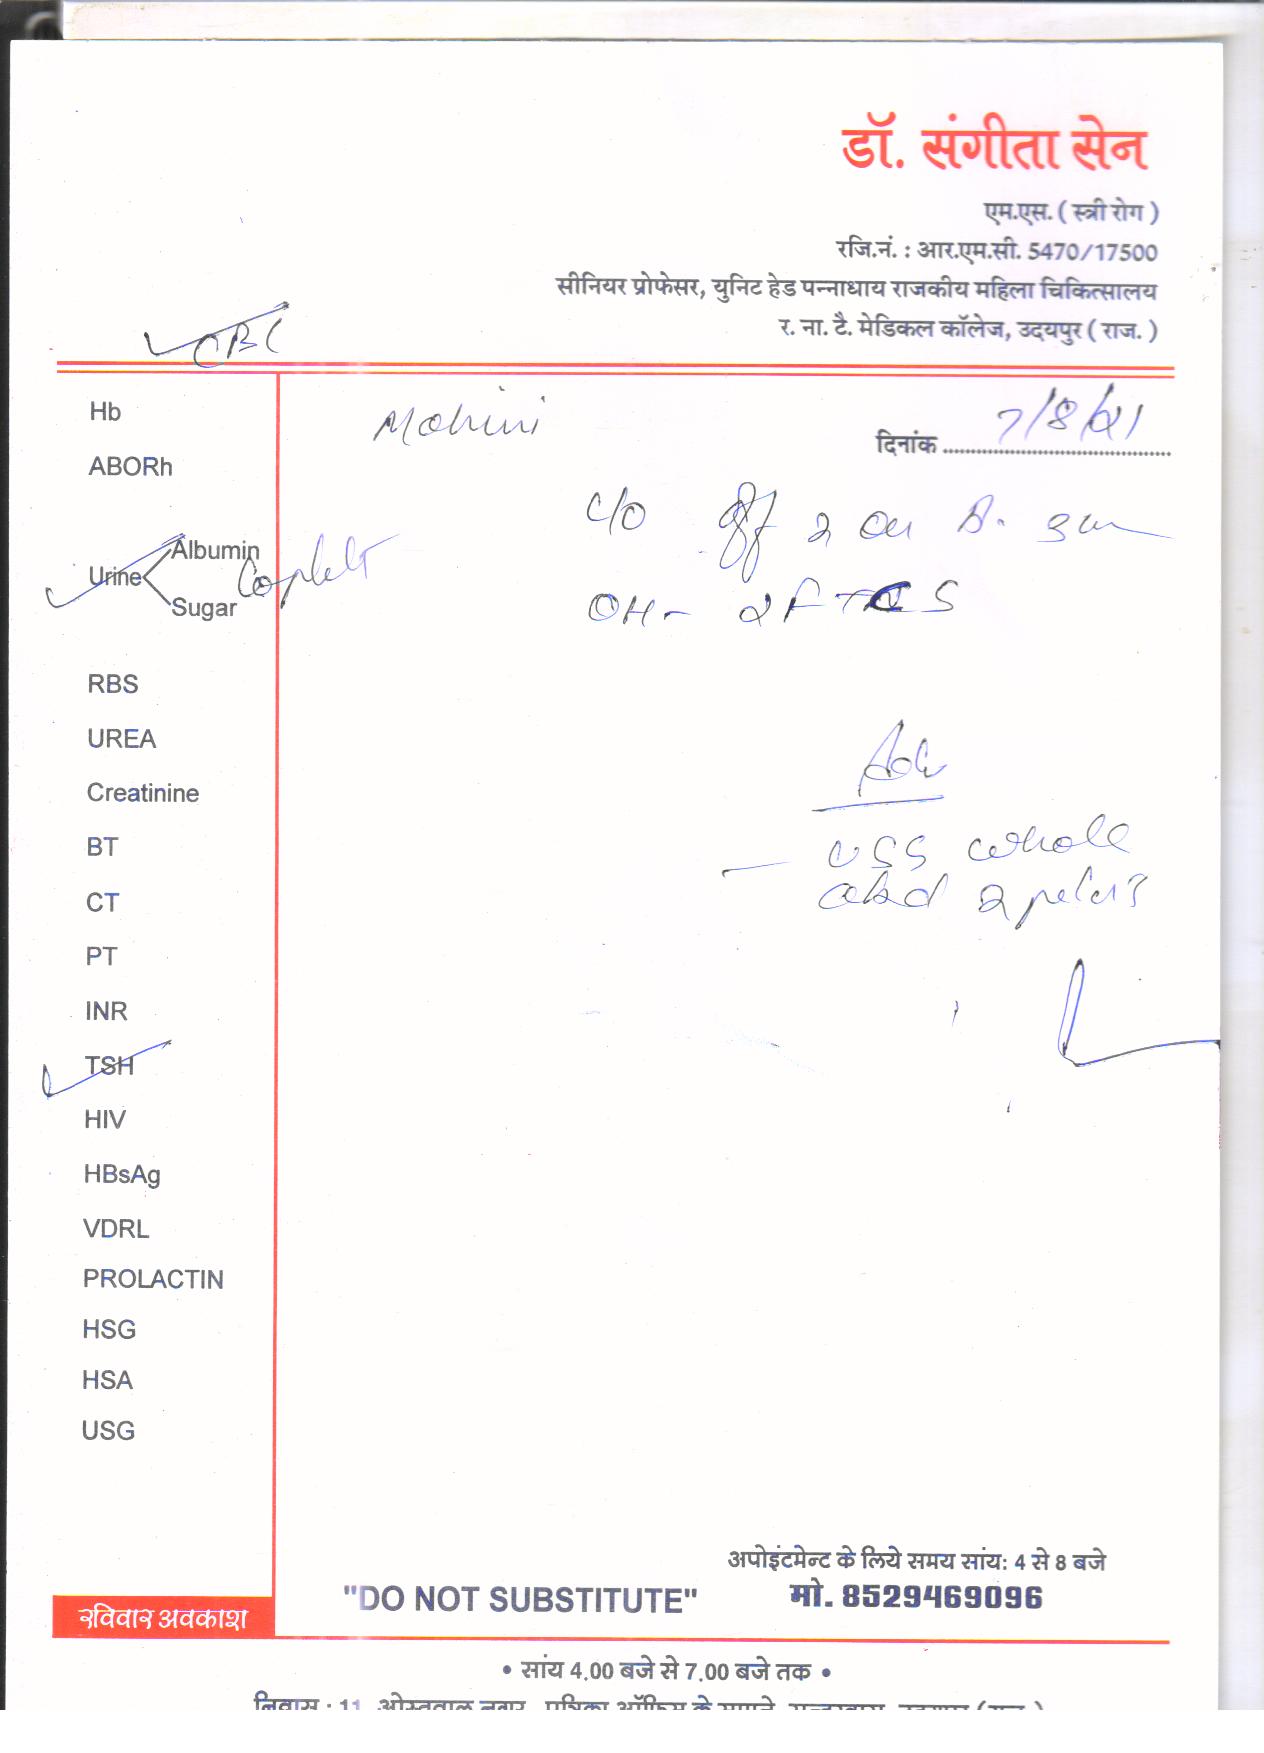 डॉ. संगीता सेन
एम.एस. ( स्त्री रोग )
रजि.नं. : आर.एम.सी. 5470/17500
सीनियर प्रोफेसर, युनिट हेड पन्नाधाय राजकीय महिला चिकित्सालय
र. ना. टै. मेडिकल कॉलेज, उदयपुर ( राज. )
CBC
Hb
Mohini
दिनांक 7/8/21
ABORh
C/O
Urine Albumin Sugar
OH-
RBS
UREA
Creatinine
BT
USG whole
CT
abd & pelvis
PT
INR
TSH
HIV
HBsAg
VDRL
PROLACTIN
HSG
HSA
USG
अपोइंटमेन्ट के लिये समय सांय: 4 से 8 बजे
"DO NOT SUBSTITUTE"
मो. 8529469096
रविवार अवकाश
• सांय 4.00 बजे से 7.00 बजे तक •
निवास : 11,